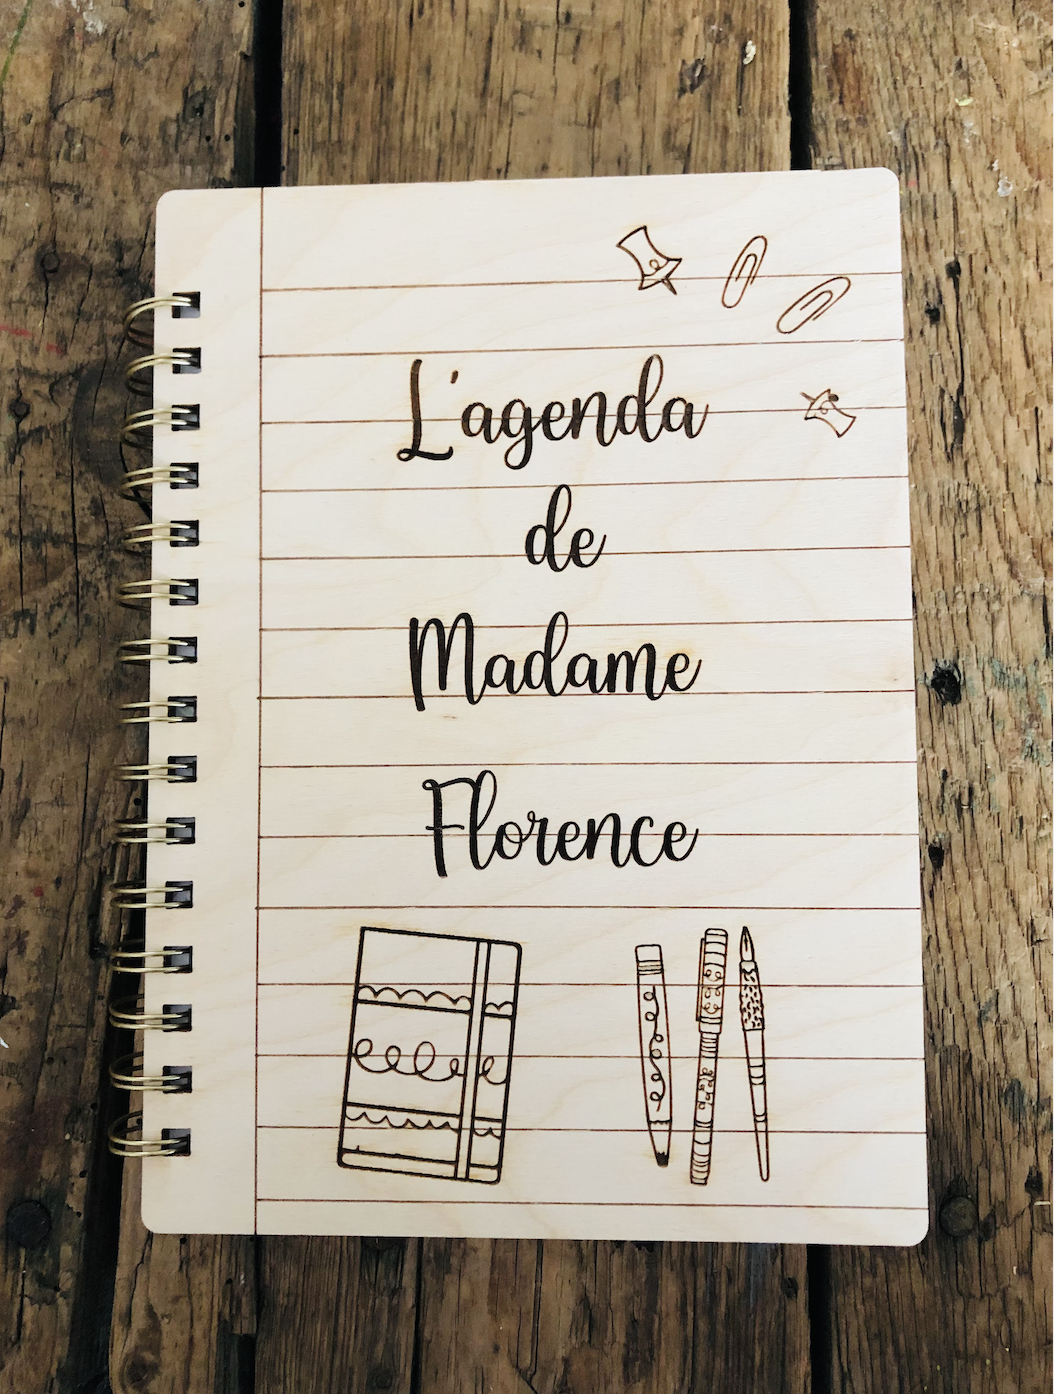 L'agenda
de
Madame
Florence